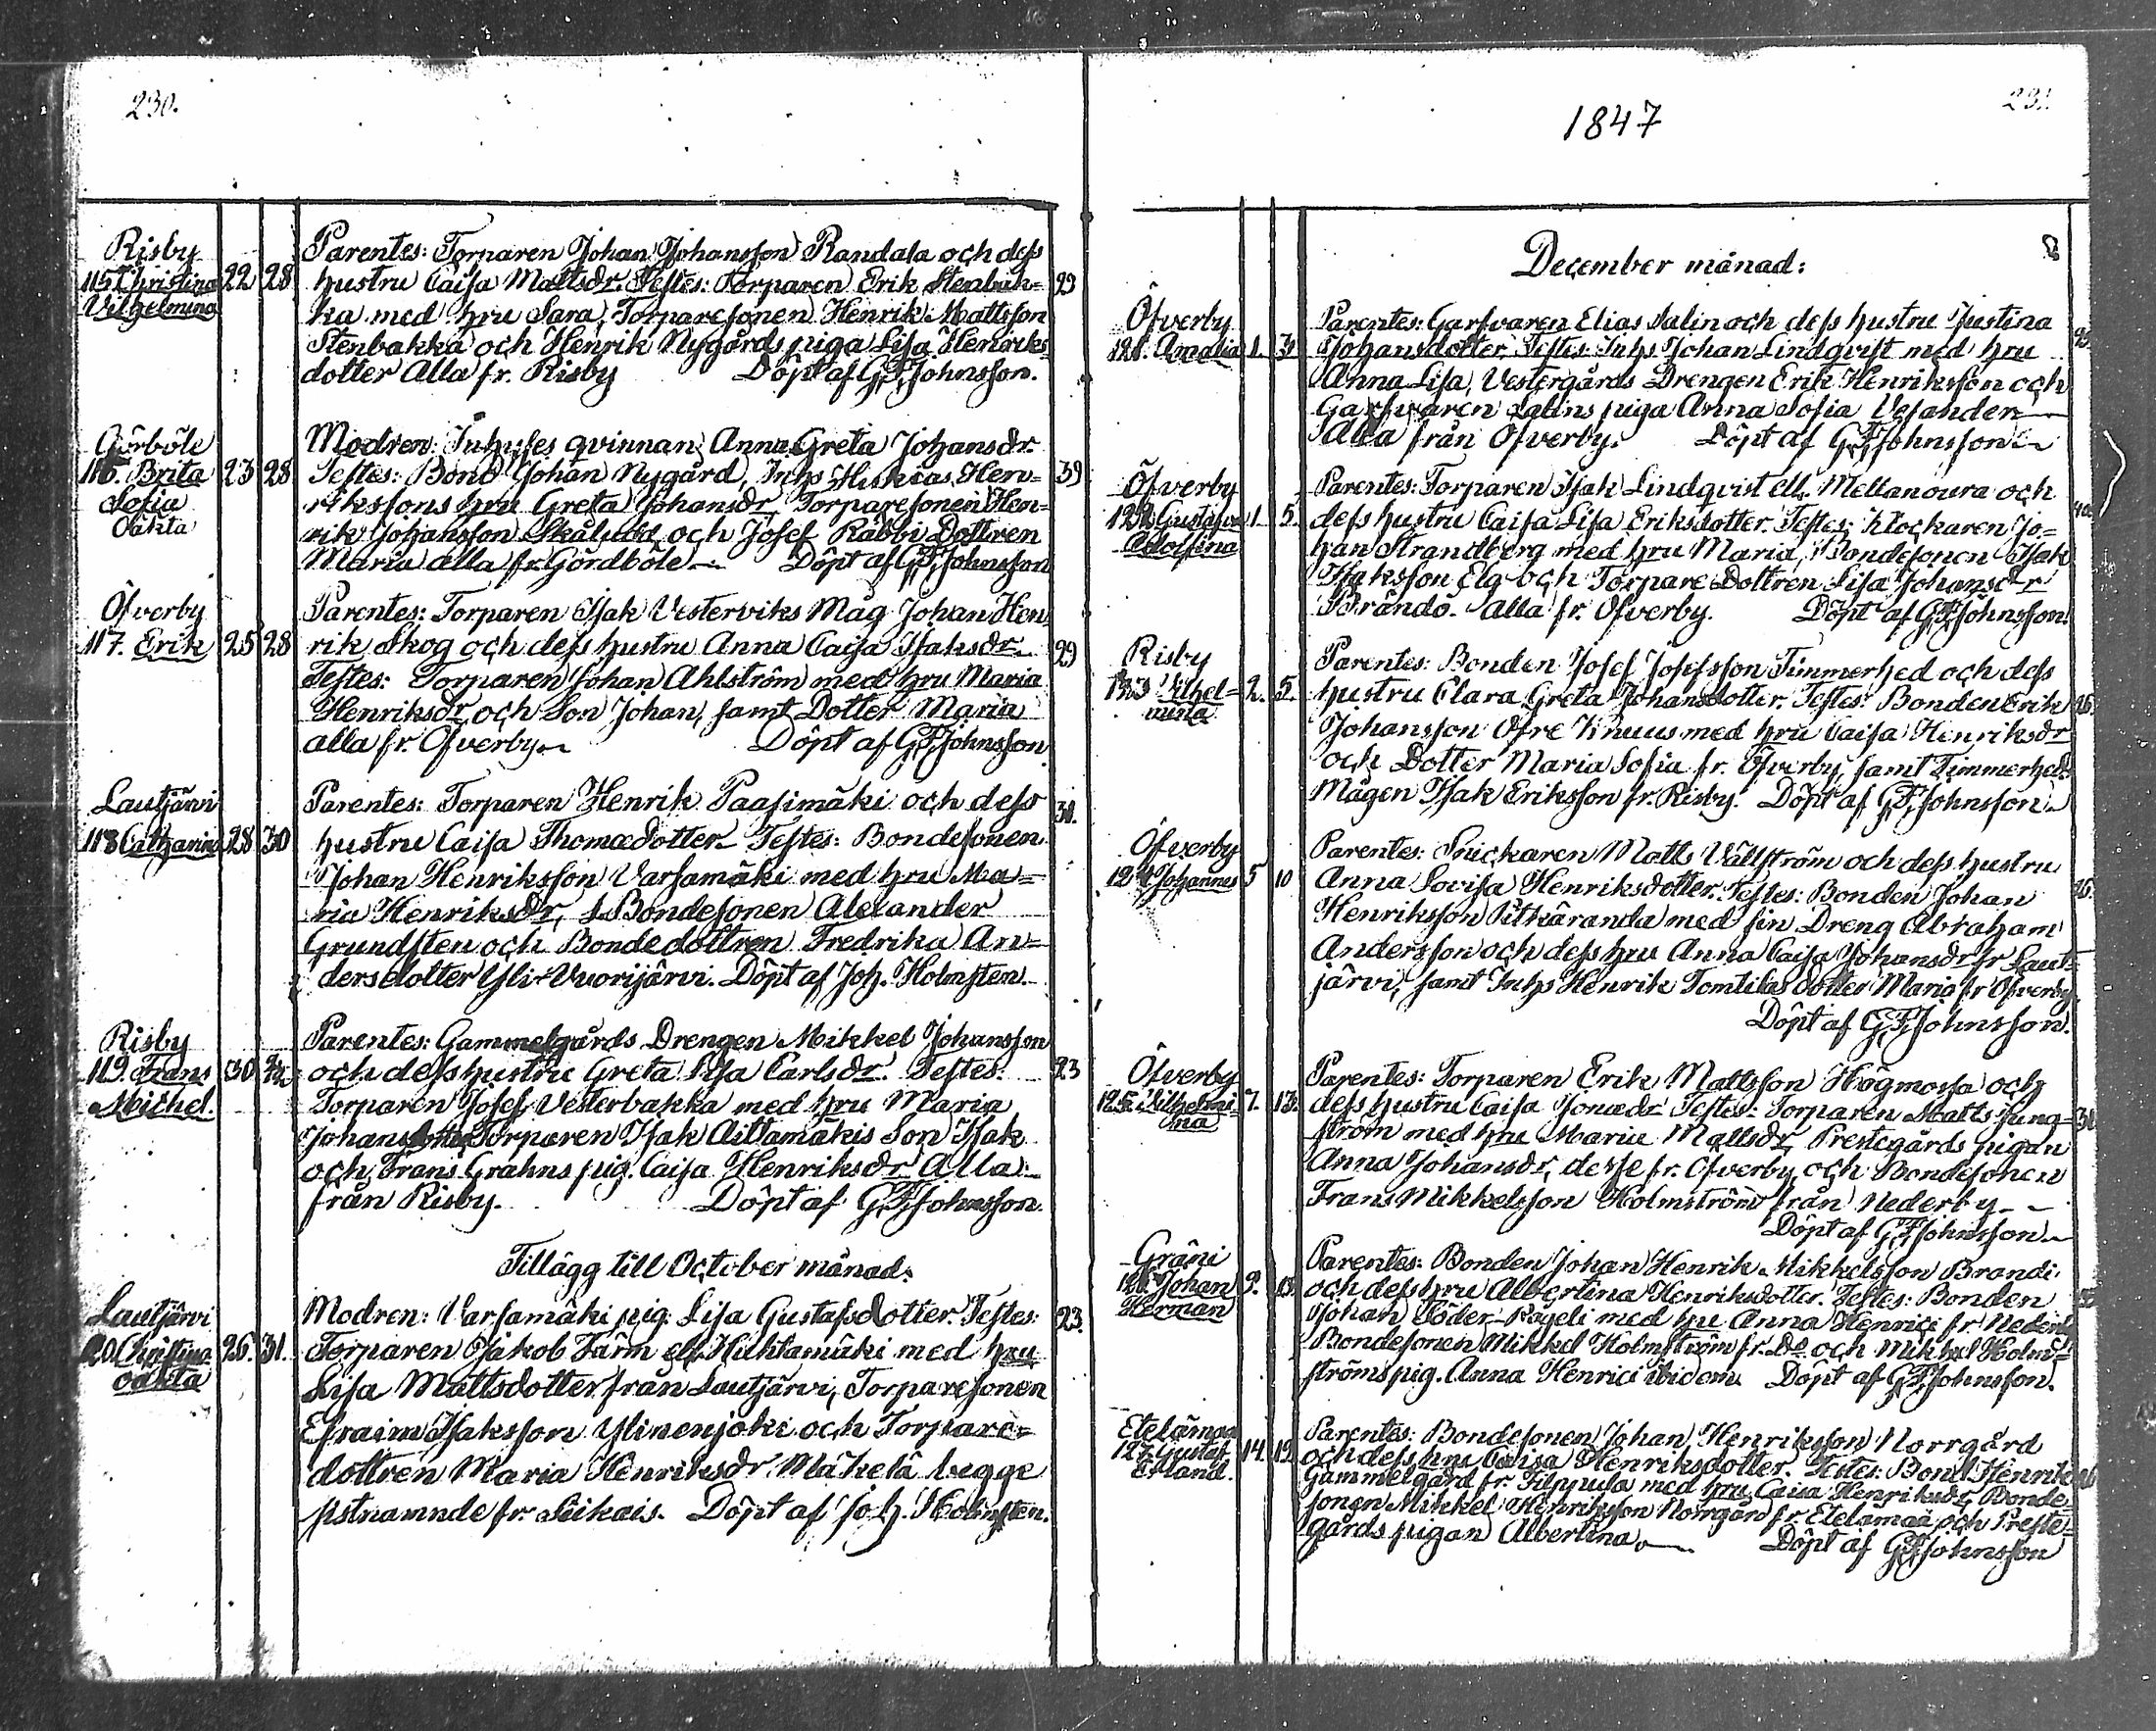 230.
Risby
115 Christina 22 28
Vilhelmina
Parentes: Torparen Johan Johansson Randala och dess
hustru Caisa Mattsdr. Testes: Torparen Erik Stenbak= 29
ka med hru Sara, Torparesonen Henrik Mattsson
Stenbakka och Henrik Nygårds piga Lisa Henriks
dotter Alla fr. Risby Döpt af G.F. Johnsson.
Gårböle
116. Brita 23 28
Sofia
Oäkta
Modren: Inhyses qvinnan Anna Greta Johansdr.
Testes: Bond Johan Nygård, Inhs Hiskias Hen= 39
rikssons hru Greta Johansdr, Torparesonen Hen=
rik Johansson och Josef Räbbi Dottren
Maria alla fr. Gördböle Döpt af G.F. Johnsson
Öfverby
117. Erik 25 28
Parentes: Torparen Isak Vesterviks Måg Johan Hen
rik Skog och dess hustru Anna Caisa Isaksdr. 29
Testes: Torparen Johan Ahlström med hru Maria
Henriksdr och Son Johan, samt Dotter Maria
alla fr. Öfverby. Döpt af G.F. Johnsson
Lautjärvi
118 Catharina 28 30
Parentes: Torparen Henrik Paasimäki och dess
hustru Caisa Thomædotter. Testes: Bondesonen
Johan Henriksson Varsamäki med hru Ma=
ria Henriksdr, Bondesonen Alexander
Grundsten och Bondedottren Fredrika An=
dersdotter Yli-Vuorijärvi. Döpt af Joh. Holmsten.
Risby
119. Frans 30
Michel.
Parentes: Gammelgårds Drengen Mikkel Johansson
och dess hustru Greta Lisa Carlsdr. Testes: 23
Torparen Josef Vesterbakka med hru Maria
Johansdotter, Torparen Isak Aittamäkis Son Isak
och Frans Grahns pig. Caisa Henriksdr Alla
från Risby. Döpt af G.F. Johnsson.
Tillägg till October månad.
Lautjärvi
120 Christina 26. 31.
oäkta
Modren: Varsamäki pig. Lisa Gustafsdotter. Testes: 23.
Torparen Jakob Färm ell. Huhtamäki med hru
Lisa Mattsdotter från Lautjärvi, Torparesonen
Efraim Isaksson Ylinenjoki och Torpare=
dottren Maria Henriksdr Mäkelä begge
sistnämnde fr. Leikais. Döpt af Joh. Holmsten.
1847
231.
December månad:
Öfverby
121. Amalia 1. 3.
Parentes: Garfvaren Elias Salin och dess hustru Justina
Johansdotter. Testes: Inhs Johan Lindqvist med hru
Anna Lisa, Vestergårds Drengen Erik Henriksson och
Garfvaren Salins piga Anna Sofia Vesander
Alla från Öfverby. Döpt af G.F. Johnsson
Öfverby
122 Gustafva 1. 5.
Adolfina
Parentes: Torparen Isak Lindqvist ell. Mellanoura och
dess hustru Caisa Lisa Eriksdotter. Testes: Klockaren Jo= 40.
han Strandberg med hru Maria, Bondesonen Isak
Isaksson Elg och Torpare Dottren Lisa Johansdr
Brändö. alla fr. Öfverby. Döpt af G.F. Johnsson.
Risby
123 Vilhel= 2. 5.
mina
Parentes: Bonden Josef Josefsson Timmerhed och dess
hustru Clara Greta Johansdotter. Testes: Bonden Erik 26.
Johansson Öfre Knuus med hru Caisa Henriksdr
och Dotter Maria Sofia fr. Öfverby, samt Timmerheds
Mågen Isak Eriksson fr. Risby. Döpt af G.F. Johnsson.
Öfverby
124 Johannes 5 10
Parentes: Snickaren Matts Vällström och dess hustru
Anna Lovisa Henriksdotter. Testes: Bonden Johan 26.
Henriksson Pitkäranda med sin Dreng Abraham
Andersson och dess hru Anna Caisa Johansdr fr Laut=
järvi, samt Inhs Henrik Tomtilas dotter Maria fr Öfverby.
Döpt af G.F. Johnsson.
Öfverby
125. Vilhelmi= 7. 13.
na
Parentes: Torparen Erik Mattsson Högmossa och
dess hustru Caisa Jonædr. Testes: Torparen Matts Ljung= 31
ström med hru Maria Mattsdr, Prestegårds pigan
Anna Johansdr, desse fr. Öfverby, och Bondesonen
Frans Mikkelsson Holmström från Nederby
Döpt af G.F. Johnsson
Gräni
126 Johan 9. 13.
Herman
Parentes: Bonden Johan Henrik Mikkelsson Brandi
och dess hru Albertina Henriksdotter. Testes: Bonden
Johan Söder-Rågeli med hru Anna Henrici fr Nederby
Bondesonen Mikkel Holmström fr. Do och Mikkel Holm=
ströms pig. Anna Henrici ibidem. Döpt af G.F. Johnsson.
Etelämaa
127. Gustaf 14. 19.
Erland.
Parentes: Bondesonen Johan Henriksson Norrgård
och dess hru Caisa Henriksdotter. Testes: Bond. Henrik
Gammelgård fr. Filppula med hru Caisa Henriksdr, Bonde=
sonen Mikkel Henriksson Norrgård fr. Etelämaa och Preste=
gårds pigan Albertina. Döpt af G.F. Johnsson